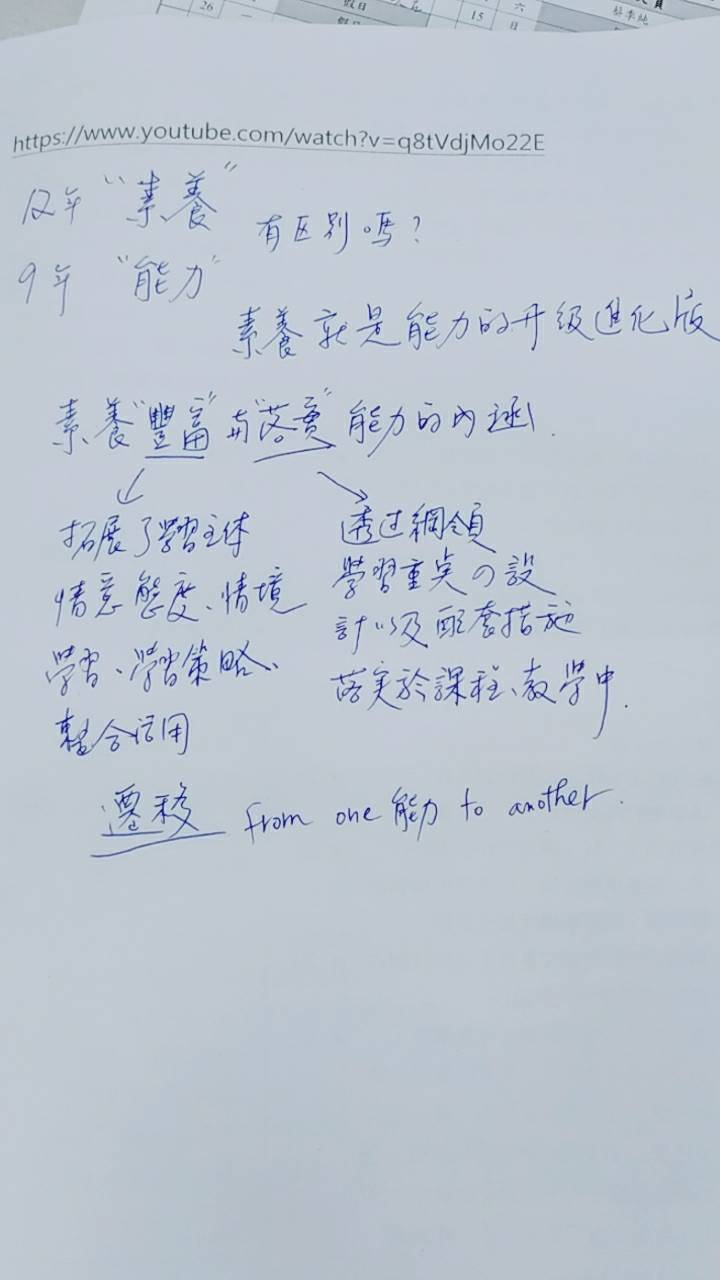 26 一 假日
15 六
日
蔡季純
https://www.youtube.com/watch?v=q8tVdjMo22E
12年 "素養"
有区別嗎?
9年 "能力"
素養就是能力的升級進化版
素養"豐富"与"落實"能力的内涵.
拓展了學習主体
情意態度、情境
學習、學習策略、
整合活用
透过綱領
學習重奌の設
計以及配套措施
落実於課程、教學中.
遷移 from one 能力 to another.